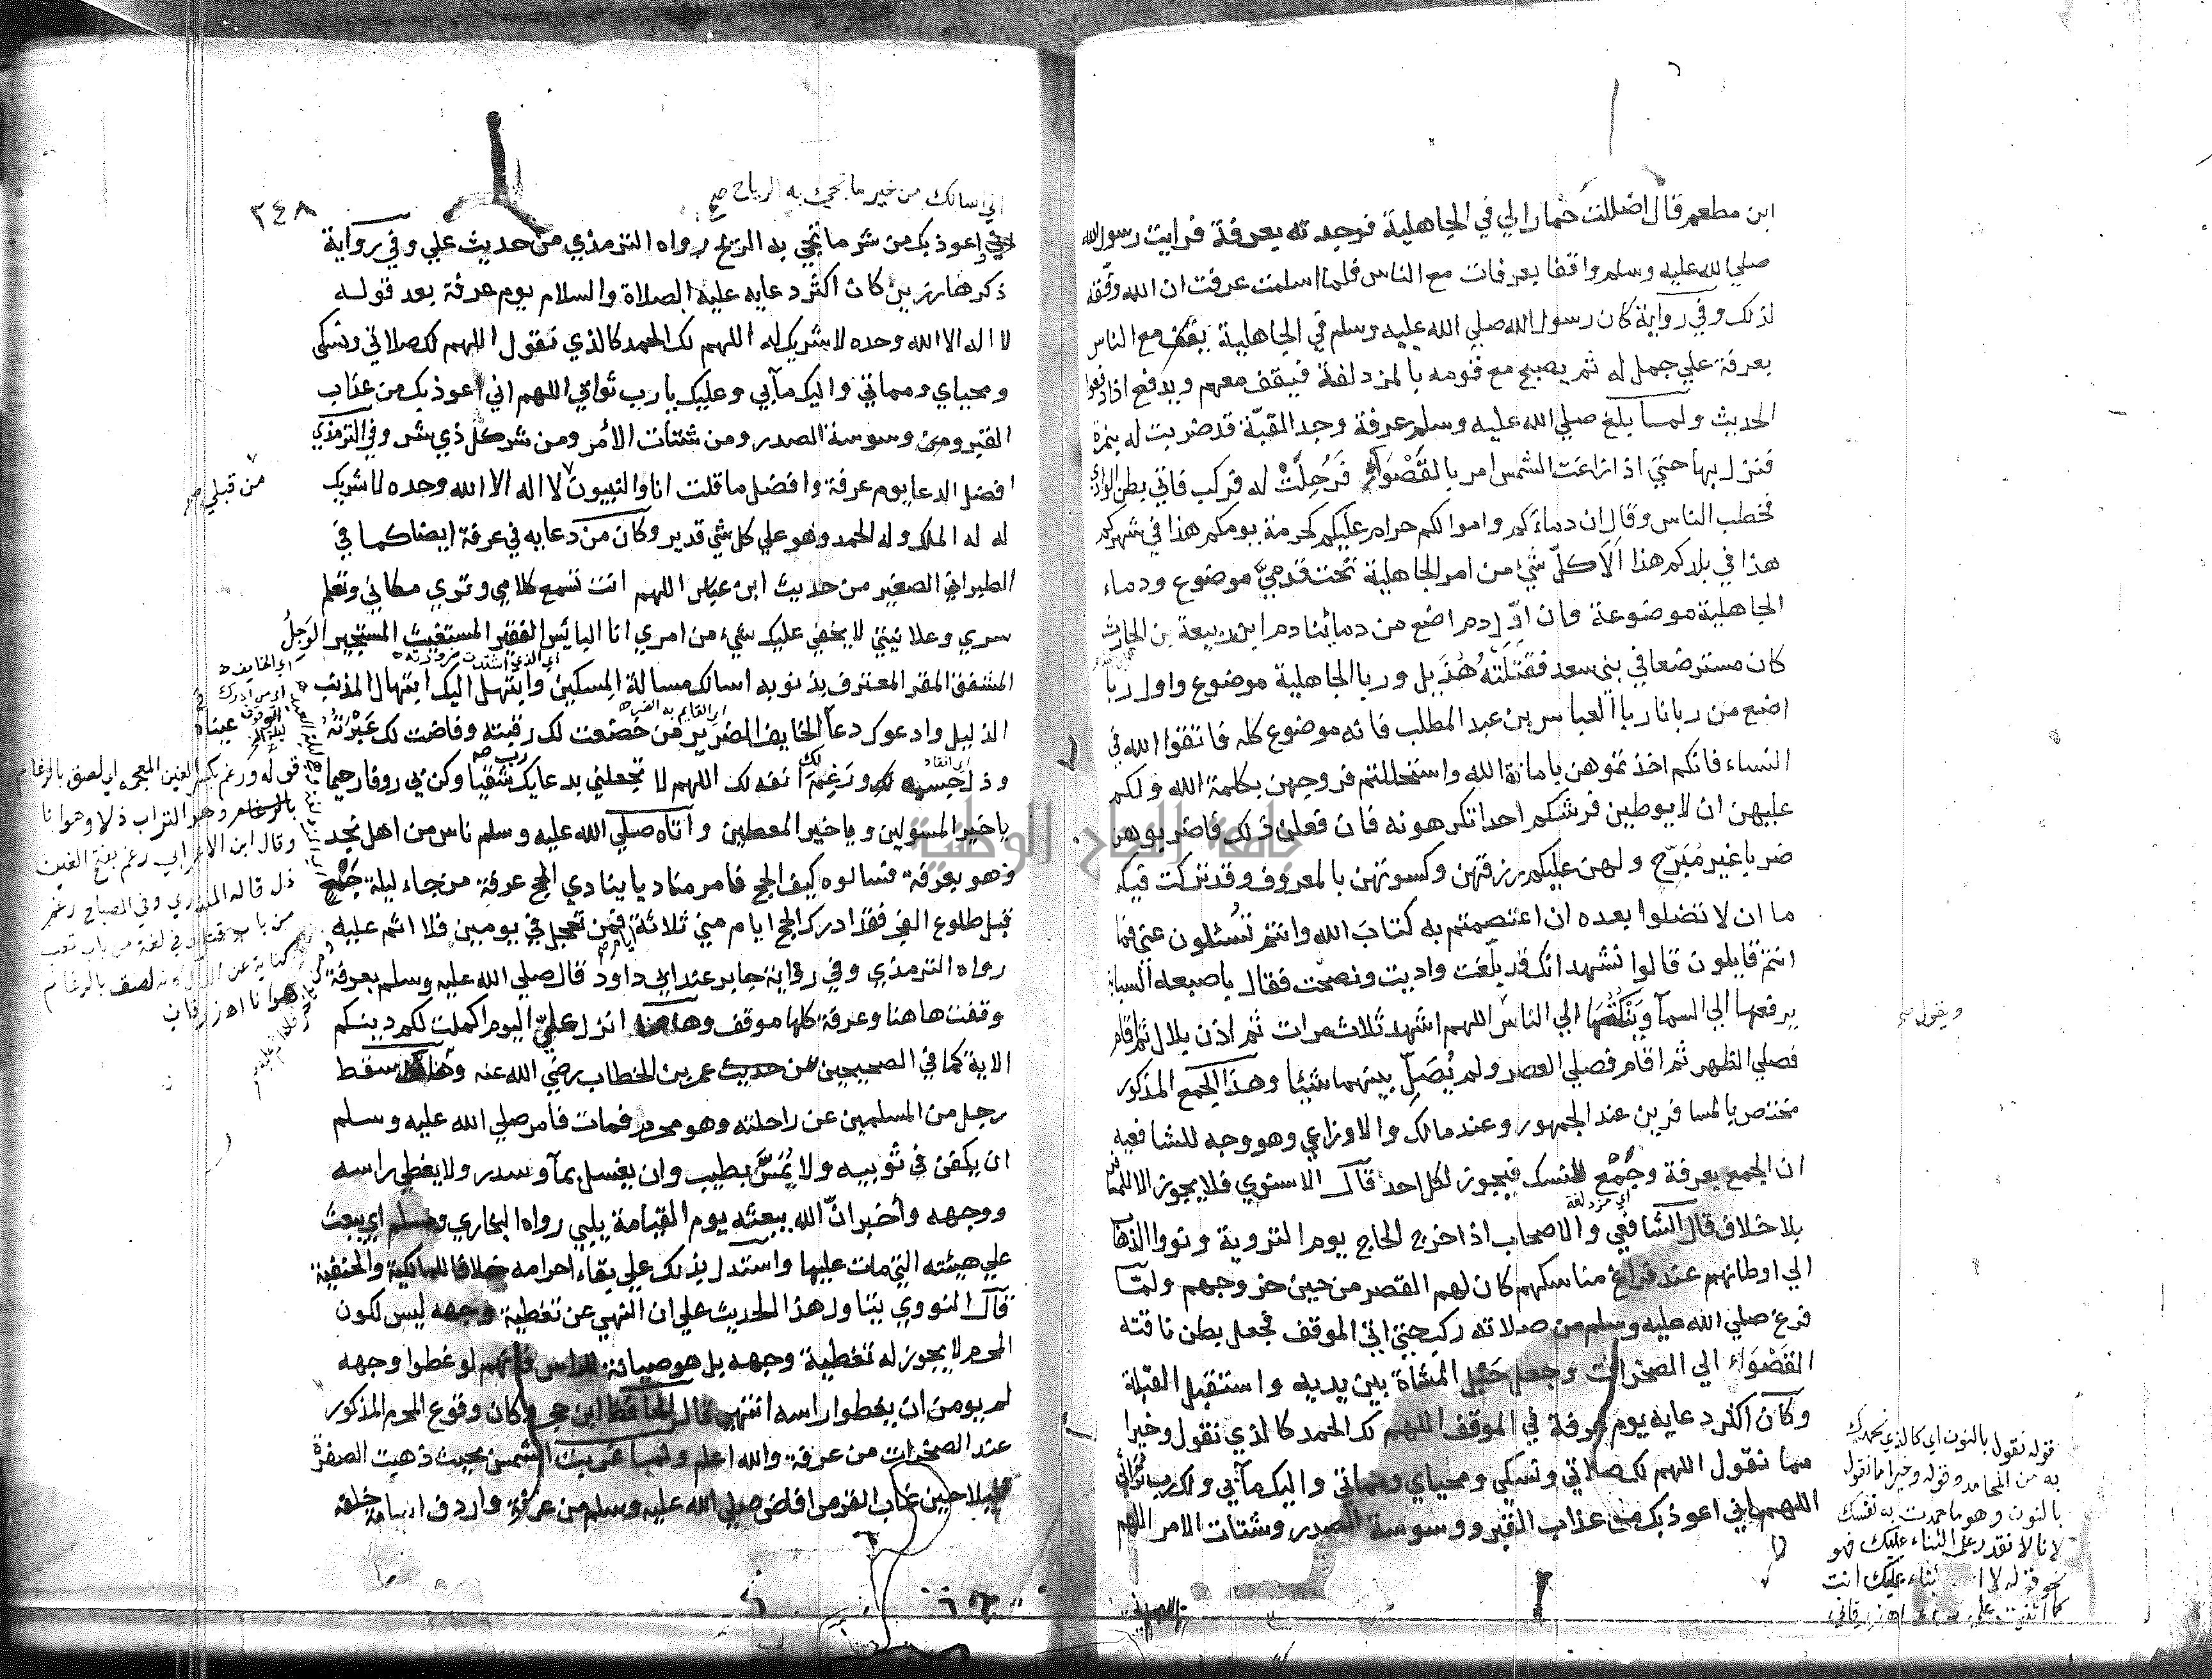 ابن مطعم قال اضللت حمارا لي في الجاهلية فوجدته بعرفة فرايت رسول الله
صلي الله عليه وسلم واقفا بعرفات مع الناس فلما اسلمت عرفت ان الله وفقه
لذلك وفي رواية كان رسول الله صلي الله عليه وسلم في الجاهلية يقف مع الناس
بعرفة علي جمل له ثم يصبح مع قومه بالمزدلفة فيقف معهم ويدفع اذا دفعوا
الحديث ولما بلغ صلي الله عليه وسلم عرفة وجد القبّة قد ضربت له بنمرة
فنزل بها حتي اذا زاغت الشمس امر بالقَصْوَآءِ فَرُحِلَتْ له فركب فاتي بطن الوادي
فخطب الناس وقال ان دماءكم واموالكم حرام عليكم كحرمة يومكم هذا في شهركم
هذا في بلدكم هذا اَلَا كلّ شئ من امر الجاهلية تحت قدميَّ موضوع ودماء
الجاهلية موضوعة وان اوّل دم اضع من دمائنا دم ابن ربيعة بن الحارث
كان مسترضعا في بني سعد فقتلته هُذَيل وربا الجاهلية موضوع واول ربا
اضع من ربانا ربا العباس بن عبد المطلب فانه موضوع كله فاتقوا الله في
النساء فانكم اخذتموهن بامانة الله واستحللتم فروجهن بكلمة الله ولكم
عليهن ان لا يوطين فرشكم احدا تكرهونه فان فعلن ذلك فاضربوهن
ضربا غير مُبَرِّح ولهن عليكم رزقهن وكسوتهن بالمعروف وقد تركت فيكم
ما ان لا تضلوا بعده ان اعتصمتم به كتابَ الله وانتم تُسئلون عني فما
انتم قايلون قالوا نشهد انك قد بلّغت واديت ونصحت فقال باصبعه السبابة
يرفعها الي السمآ وَيَنْكُتُهَا الي الناس اللهم اشهد ثلاث مرات ثم اذن بلال ثم اقام
ويقول صح
فصلي الظهر ثم اقام فصلي العصر ولم يُصَلِّ بينهما شيئا وهذا الجمع المذكور
مختص بالمسافرين عند الجمهور وعند مالك والاوزاعي وهو وجه للشافعية
ان الجمع بعرفة وجَمْع للنسك فيجوز لكل احد قال الاسنوي فلا يجوز الا للمسافر
اي مزدلفة
بلا خلاف قال الشافعي والاصحاب اذا خرج الحاج يوم التروية ونووا الذهاب
الي اوطانهم عند فراغ مناسكهم كان لهم القصر من حين خروجهم ولمّا
فرغ صلي الله عليه وسلم من صلاته ركب حتي اتي الموقف فجعل بطن ناقته
القَصْوَاءِ الي الصخرات وجعل حَبْل المشاة بين يديه واستقبل القبلة
وكان اكثر دعايه يوم عرفة في الموقف اللهم لك الحمد كالذي نقول وخيرا
مما نقول اللهم لك صلاتي ونسكي ومحياي ومماتي واليك مآبي ولك رب تراثي
اللهم اني اعوذ بك من عذاب القبر ووسوسة الصدر وشتات الامر اللهم
قوله نقول بالنون اي كالذي نحمدك
به من المحامد وقوله وخيرا ما نقول
بالنون وهو ما حمدت به نفسك
لانا لا نقدر علي الثناء عليك فهو
نحو قوله لا ثناء عليك انت
كما اثنيت علي
٣٤٨
اني اسالك من خير ما تجئ به الرياح صح
اني اعوذ بك من شر ما تجي به الريح رواه الترمذي من حديث علي وفي رواية
ذكرها رزين كان اكثر دعايه عليه الصلاة والسلام يوم عرفة بعد قوله
لا اله الا الله وحده لا شريك له اللهم لك الحمد كالذي نقول اللهم لك صلاتي ونسكي
ومحياي ومماتي واليك مآبي وعليك يا رب ثوابي اللهم اني اعوذ بك من عذاب
القبر ومن وسوسة الصدر ومن شتات الأمر ومن شر كل ذي شر وفي الترمذي
افضل الدعا يوم عرفة وافضل ما قلت انا والنبيون لا اله الا الله وحده لا شريك
من قبلي صح
له له الملك وله الحمد وهو علي كل شي قدير وكان من دعايه في عرفة ايضا كما في
الطبراني الصغير من حديث ابن عباس اللهم انت تسمع كلامي وتري مكاني وتعلم
سري وعلانيتي لا يخفي عليك شيء من امري انا البايس الفقير المستغيث المستجير الوَجِلُ
المشفق المقر المعترف بذنوبه اسالك مسالة المسكين وابتهل اليك ابتهال المذنب
الذليل وادعوك دعآ الخايف الضرير من خضعت لك رقبته وفاضت لك عَبْرَتُهُ
وذل جسمه لك ورَغِمَ انفه لك اللهم لا تجعلني بدعايك شقيا وكن بي روفا رحيما
رب صح
يا خير المسولين ويا خير المعطين واتاه صلي الله عليه وسلم ناس من اهل نجد
وهو بعرفة فسالوه كيف الحج فامر مناديا ينادي الحج عرفة من جاء ليلة جَمْعٍ
قبل طلوع الفجر فقد ادرك الحج ايام مني ثلاثة فمن تعجل في يومين فلا اثم عليه
ايام صح
رواه الترمذي وفي رواية جابر عند ابي داود قال صلي الله عليه وسلم بعرفة
وقفت هاهنا وعرفة كلها موقف وهاهنا انزل عليّ اليوم اكملت لكم دينكم
الاية كما في الصحيحين من حديث عمر بن الخطاب رضي الله عنه وهناك سقط
رجل من المسلمين عن راحلته وهو محرم فمات فامر صلي الله عليه وسلم
ان يكفن في ثوبيه ولا يُمَسَّ بطيب وان يغسل بمآ وسدر ولا يغطي راسه
ووجهه وأخبر انّ الله يبعثه يوم القيامة يلبي رواه البخاري ومسلم اي يبعث
علي هيئته التي مات عليها واستدل بذلك علي بقاء احرامه خلافا للمالكية والحنفية
قال النووي يتاول هذا الحديث علي ان النهي عن تغطية وجهه ليس لكون
المحرم لا يجوز له تغطية وجهه بل هو صيانة للراس فانهم لو غطوا وجهه
لم يومن ان يغطوا راسه انتهي قال الحافظ ابن حجر وكان وقوع المحرم المذكور
عند الصخرات من عرفة والله اعلم ولما غربت الشمس بحيث ذهبت الصفرة
قليلا حين غاب القرص افاض صلي الله عليه وسلم من عرفة واردف اسامة خلفه
قوله ورغم بكسر الغين المعجمة اي لصق بالرغام
وهو التراب ذلا وهوانا
وقال ابن الاعرابي رغم بفتح الغين
ذل قاله المنذري وفي المصباح رغم
جامعة النجاح الوطنية